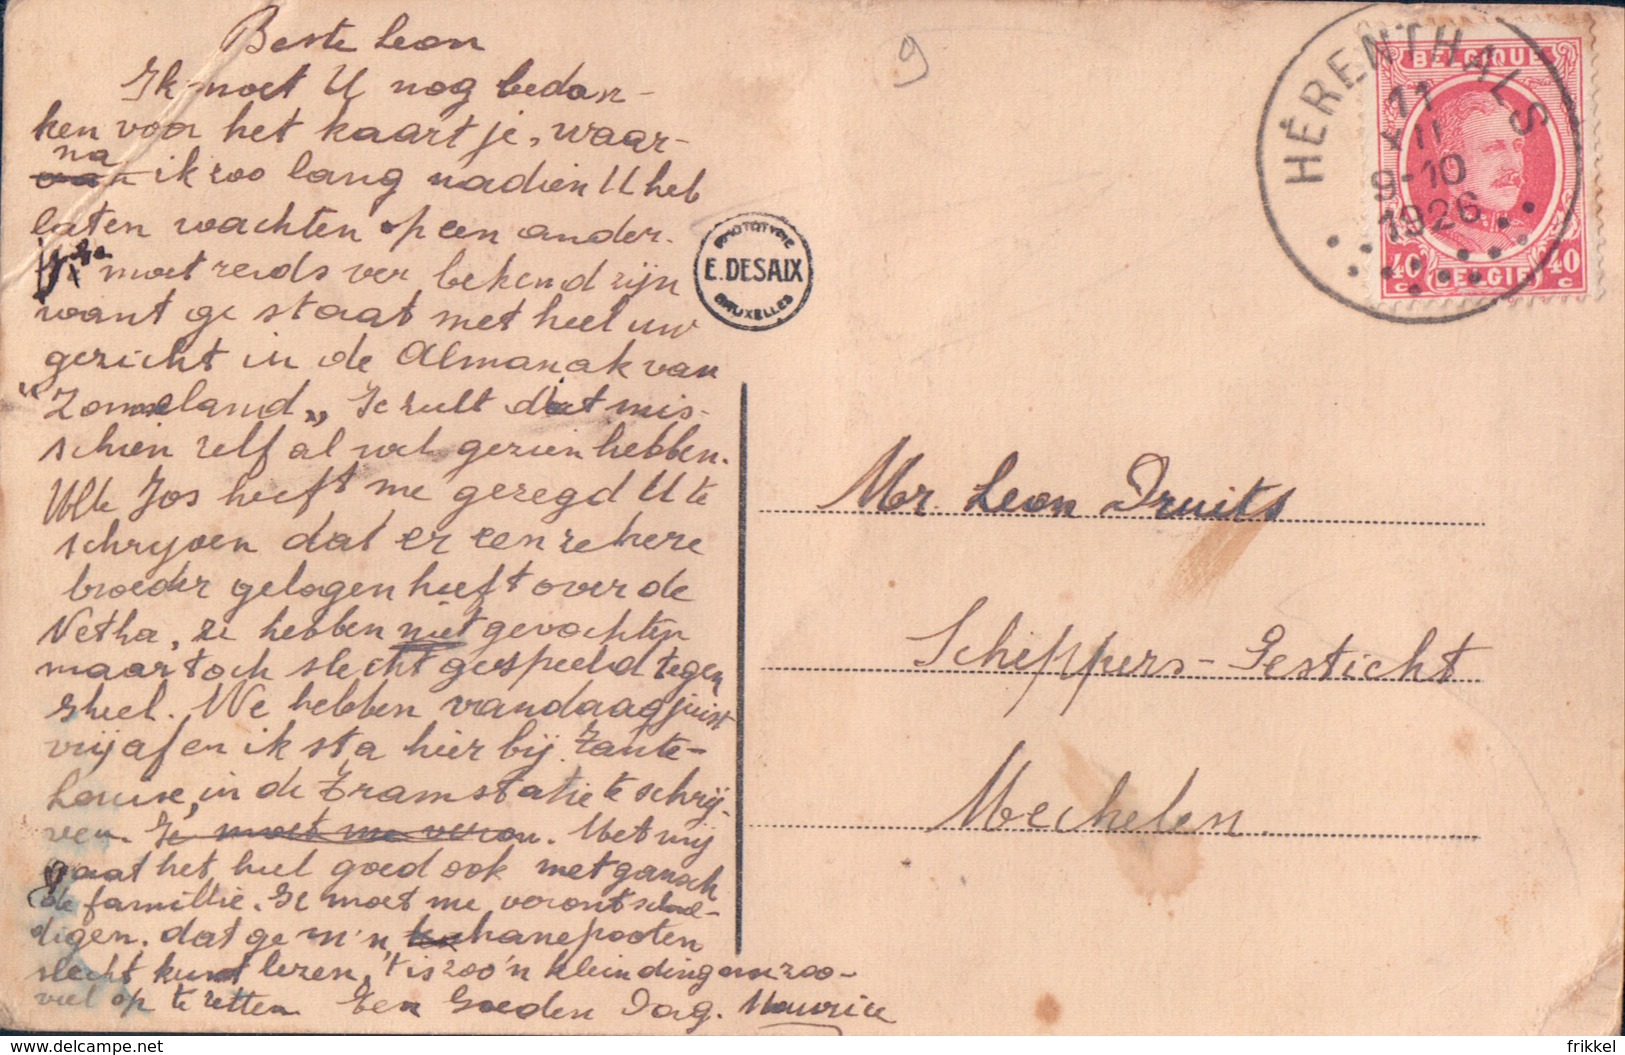 Beste Leon
Ik moet U nog bedan-
ken voor het kaartje, waar-
na
van ik zoo lang nadien U heb
laten wachten op een ander.
Ge moet reeds ver bekend zijn
want ge staat met heel uw
gezicht in de Almanak van
"Zonneland„ Je zult dat mis-
schien zelf al wel gezien hebben.
Jos heeft me gezegd U te
schrijven dat er een zekere
broeder gelogen heeft over de
Netha, ze hebben niet gevochten
maar toch slecht gespeeld tegen
Gheel. We hebben vandaag juist
vrijaf en ik sta hier bij Tante-
Louise, in de Tramstatie te schrij-
ven. Je moet me veron. Met mij
gaat het heel goed ook met gansch
de famillie. Ge moet me verontschul-
digen. dat ge m'n hanepooten
slecht kunt lezen, 't is zoo'n klein ding om zoo-
veel op te zetten Een Goeden Dag. Maurice
9
PHOTOTYPIE
E. DESAIX
BRUXELLES
HÉRENTHALS
11
XII
9-10
1926
BELGIQUE
40 c BELGIË 40 c
Mr. Leon Druits
Scheppers-Gesticht
Mechelen.
https://www.delcampe.net
frikkel